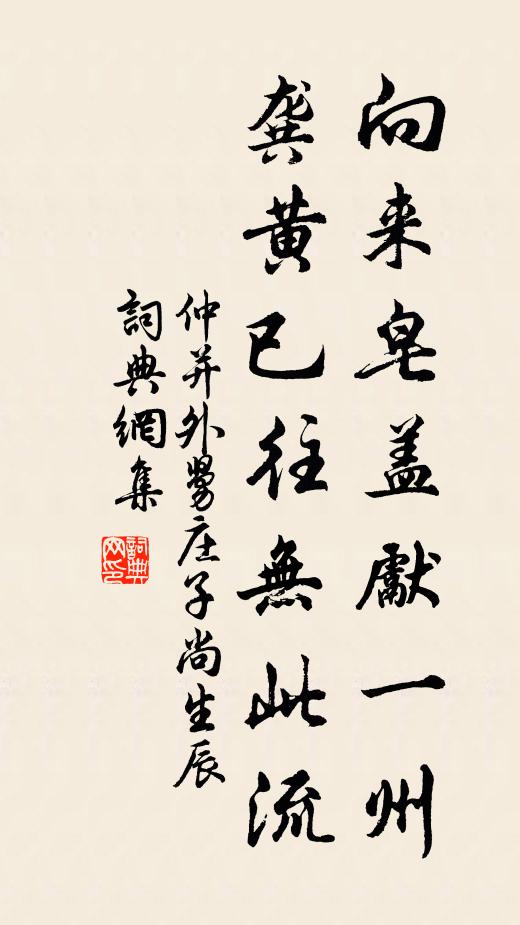 向来皂盖獻一州
龚黄已往無此流
仲并外舅庄子尚生辰
詞典網集
詞典
网印